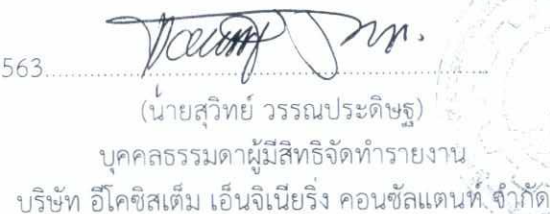 563
(นายสุวิทย์ วรรณประดิษฐ)
บุคคลธรรมดาผู้มีสิทธิจัดทำรายงาน
บริษัท อีโคซิสเต็ม เอ็นจิเนียริ่ง คอนซัลแตนท์ จำกัด